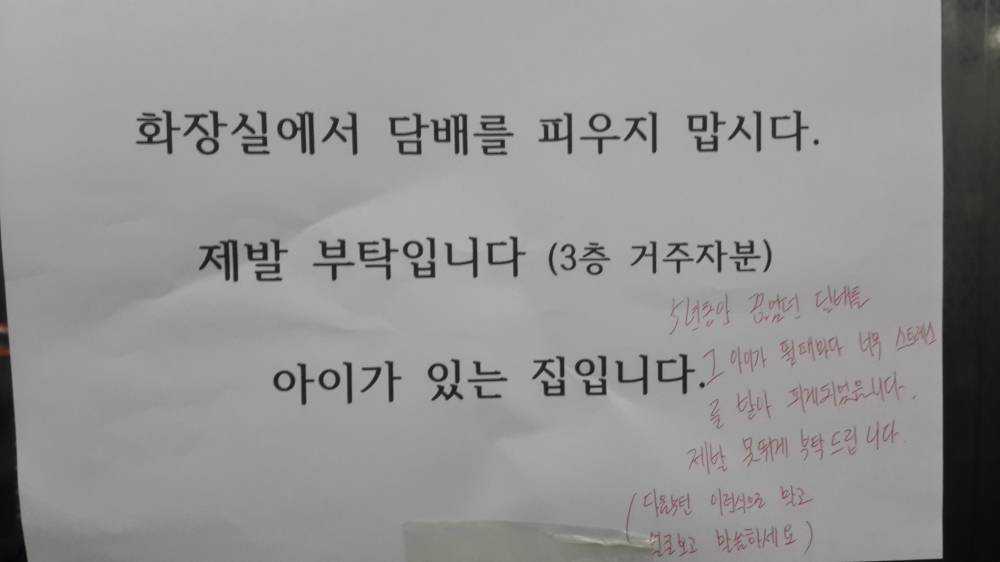 화장실에서 담배를 피우지 맙시다.
제발 부탁입니다 (3층 거주자분)
아이가 있는 집입니다.
5년동안 끊었던 담배를
그 아이가 뛸때마다 너무 스트레스
를 받아 피게되었습니다.
제발 못뛰게 부탁드립니다.
(다음부턴 이런식으로 말고
얼굴보고 말씀하세요)